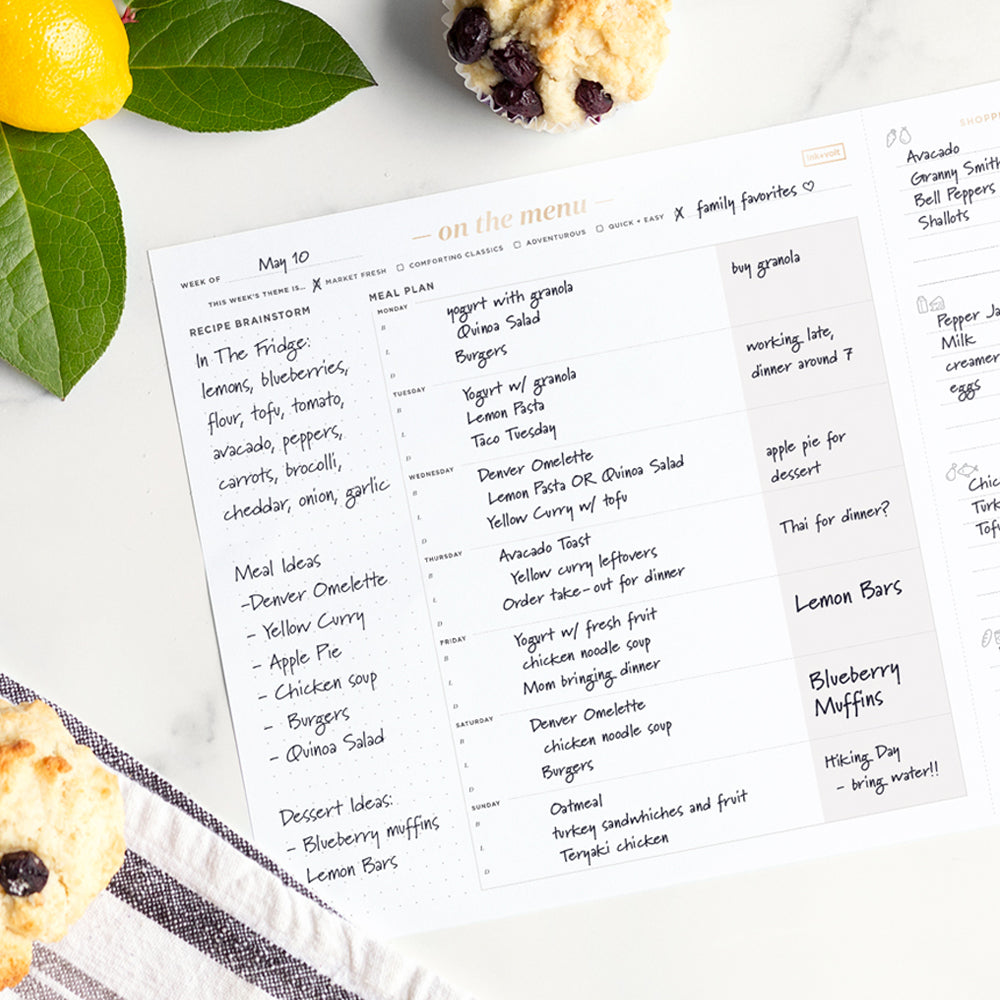 ink+volt
— on the menu —
WEEK OF May 10
THIS WEEK'S THEME IS... X MARKET FRESH ☐ COMFORTING CLASSICS ☐ ADVENTUROUS ☐ QUICK + EASY X family favorites ♡
RECIPE BRAINSTORM
In The Fridge:
lemons, blueberries,
flour, tofu, tomato,
avacado, peppers,
carrots, brocolli,
cheddar, onion, garlic
Meal Ideas
-Denver Omelette
- Yellow Curry
- Apple Pie
- Chicken soup
- Burgers
- Quinoa Salad
Dessert Ideas:
- Blueberry muffins
- Lemon Bars
MEAL PLAN
MONDAY
B yogurt with granola
L Quinoa Salad
D Burgers
buy granola
TUESDAY
B Yogurt w/ granola
L Lemon Pasta
D Taco Tuesday
working late,
dinner around 7
WEDNESDAY
B Denver Omelette
L Lemon Pasta OR Quinoa Salad
D Yellow Curry w/ tofu
apple pie for
dessert
THURSDAY
B Avacado Toast
L Yellow curry leftovers
D Order take-out for dinner
Thai for dinner?
FRIDAY
B Yogurt w/ fresh fruit
L chicken noodle soup
D Mom bringing dinner
Lemon Bars
SATURDAY
B Denver Omelette
L chicken noodle soup
D Burgers
Blueberry
Muffins
SUNDAY
B Oatmeal
L turkey sandwhiches and fruit
D Teryaki chicken
Hiking Day
- bring water!!
SHOPP
Avacado
Granny Smith
Bell Peppers
Shallots
Pepper Ja
Milk
creamer
eggs
Chic
Turk
Tofu